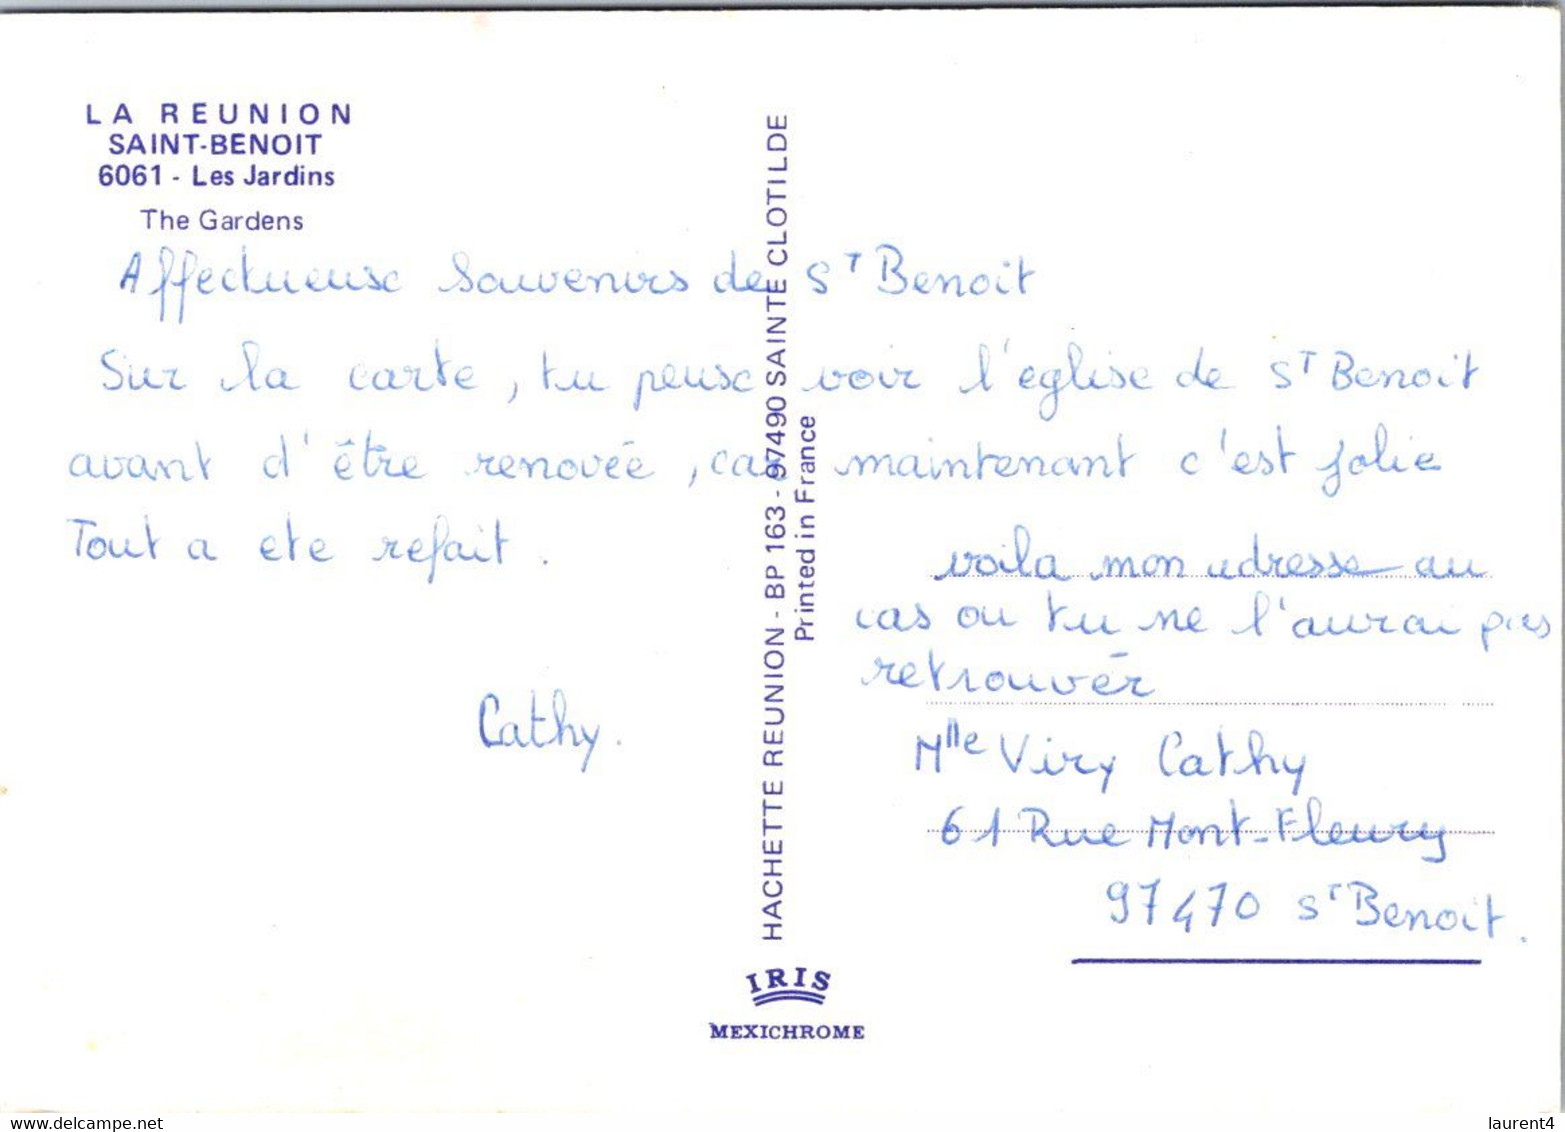 LA REUNION
SAINT-BENOIT
6061 - Les Jardins
The Gardens
Affectueuse Souvenirs de S^T Benoit
Sur la carte, tu peuse voir l'eglise de S^T Benoit
avant d'être renovée, car maintenant c'est jolie
Tout a ete refait.
Cathy.
HACHETTE REUNION - BP 163 - 97490 SAINTE CLOTILDE
Printed in France
voila mon adresse au
cas ou tu ne l'aurai pas
retrouvér
Mlle Viry Cathy
61 Rue Mont-Fleury
97470 S^T Benoit.
IRIS
MEXICHROME
https://www.delcampe.net
laurent4